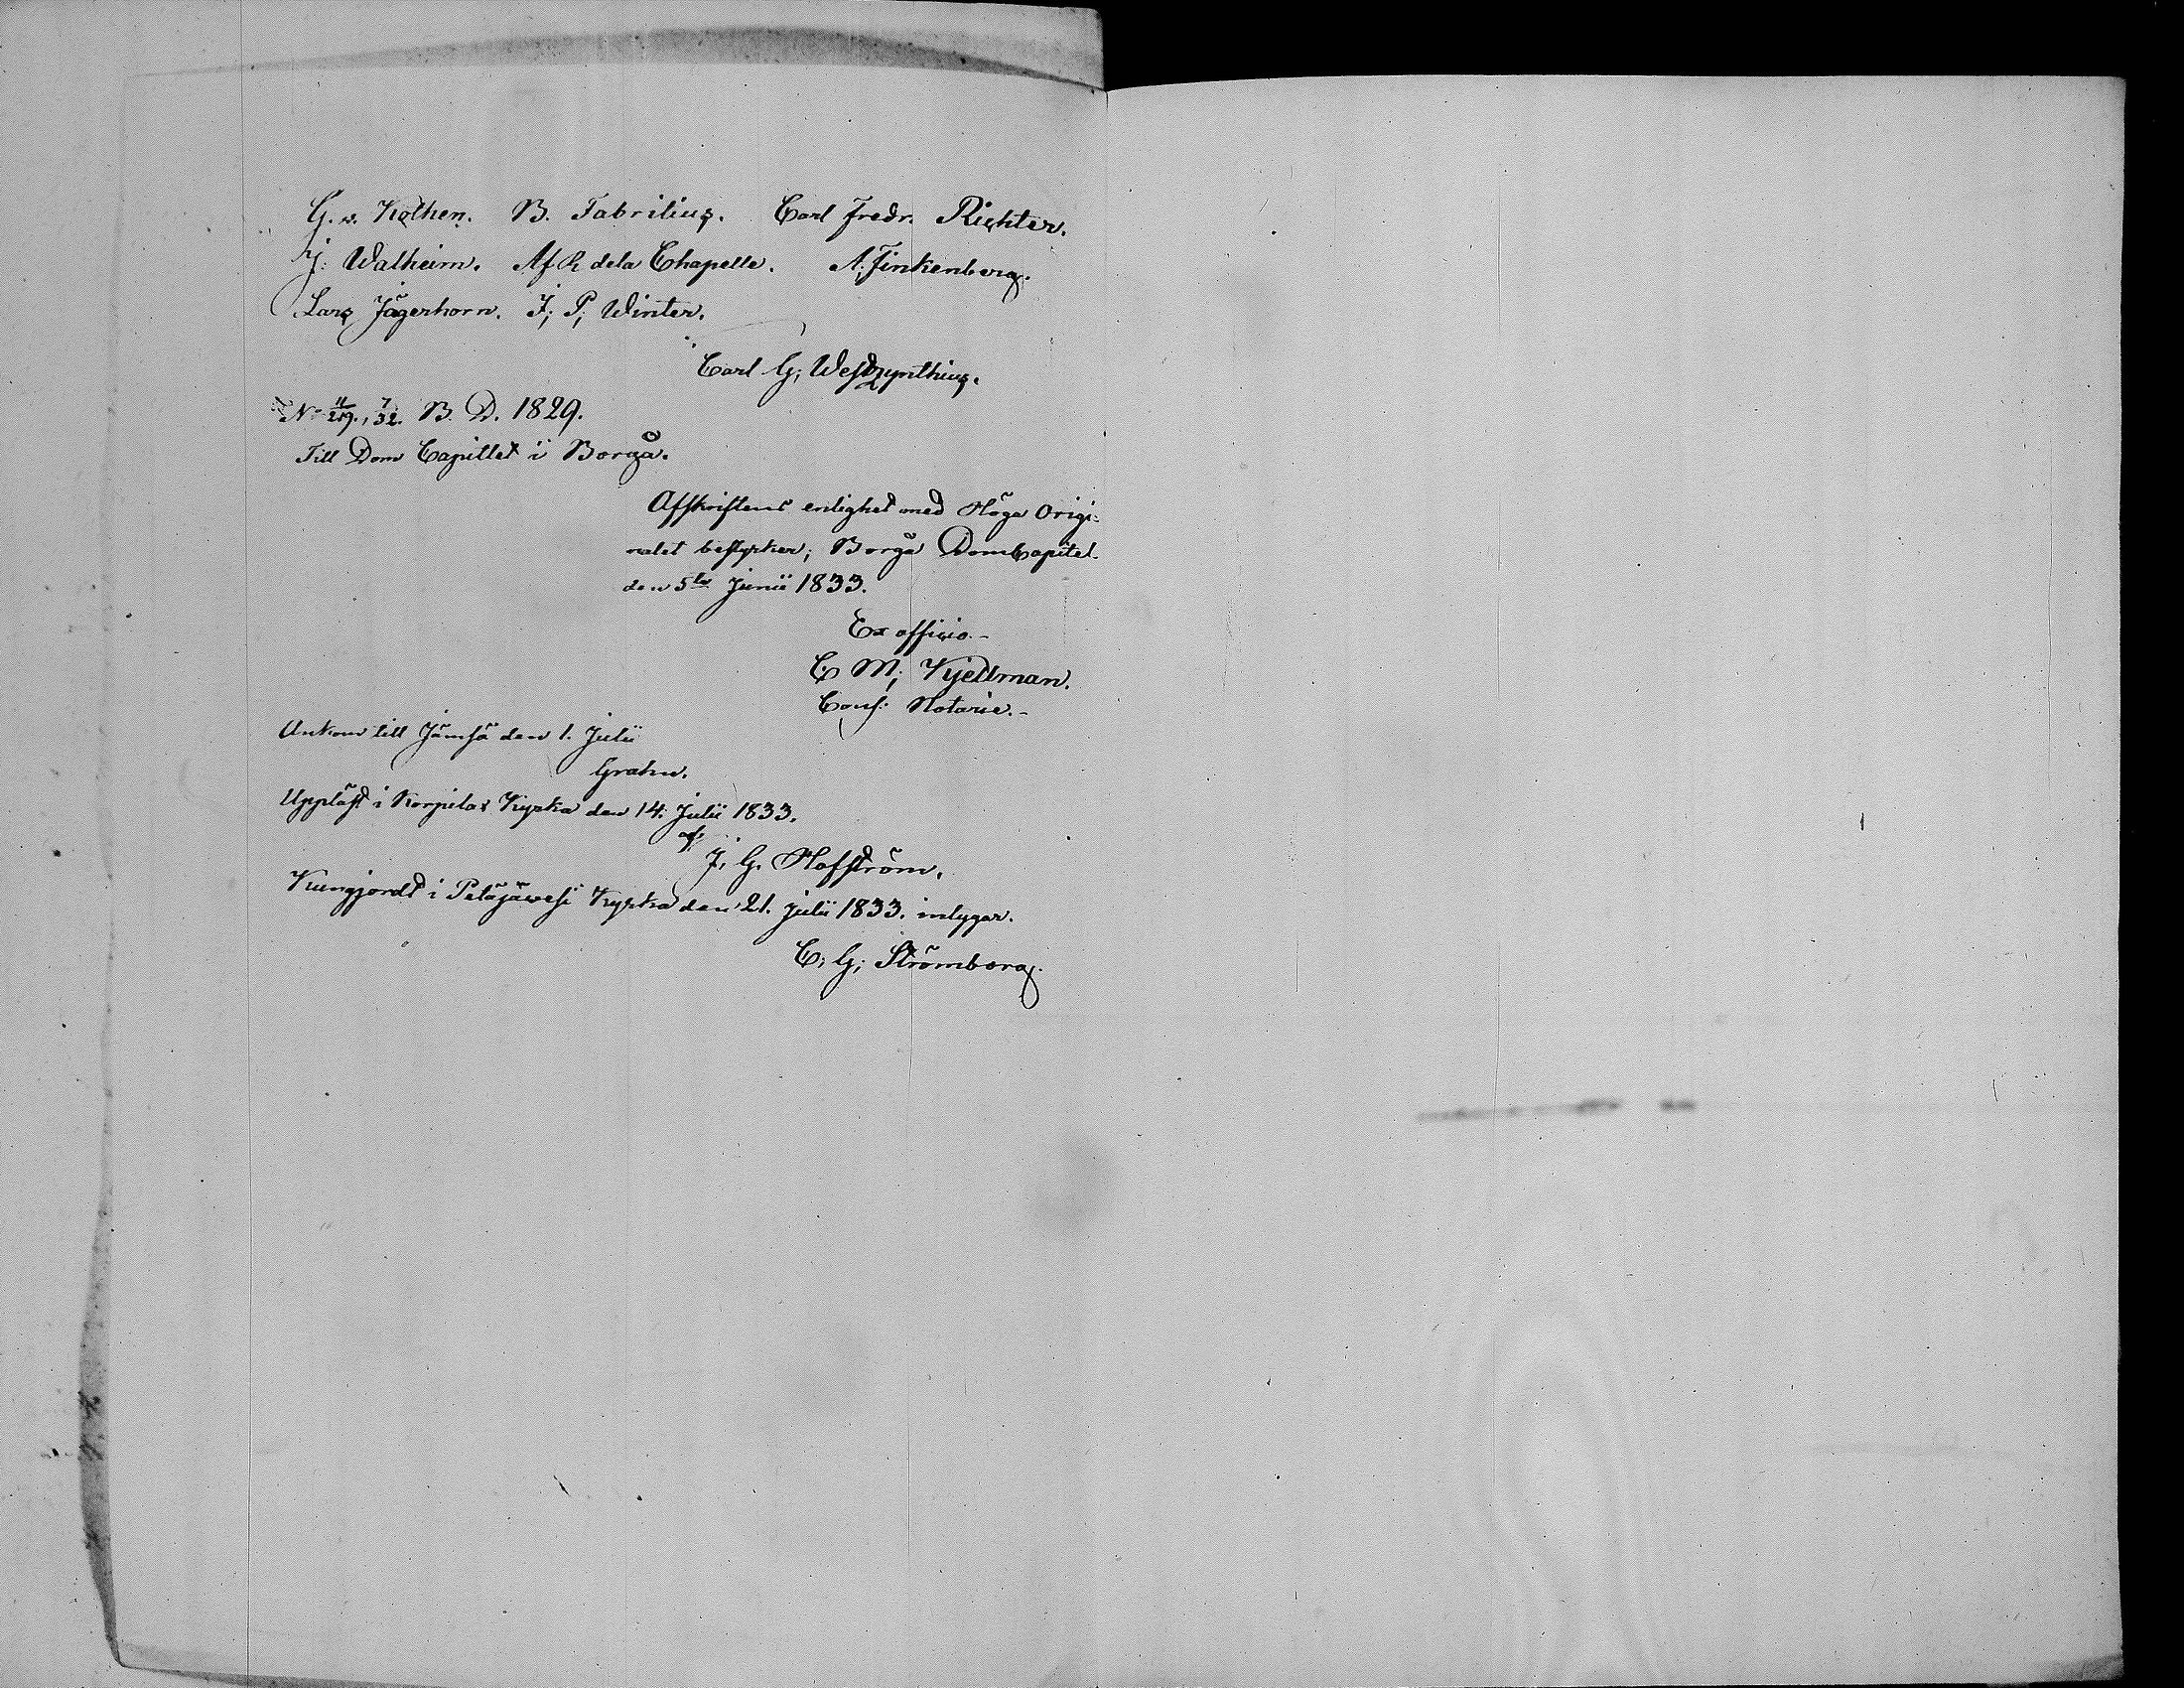 G. v. Kothen. B. Fabritius. Carl Fredr. Richter.
J: Walheim. Af R dela Chapelle. A. Finkenberg.
Lars Jägerhorn. J; P; Winter.
Carl G; Westzynthius.
No 11/219., 7/32. B. D. 1829.
Till Dom Capitlet i Borgå.
Afskriftens enlighet med Höga Origi-
nalet bestyrker; Borgå DomCapitel
den 5te Junii 1833.
Ex officio.-
C M; Kjellman.
Cons: Notarie.-
Ankom till Jämsä den 1. Julii
Grahn.
Uppläst i Korpilax Kyrka den 14. Julii 1833.
af.
J. G. Hofström.
Kungjordt i Petäjävesi Kyrka den 21. Julii 1833. intygar.
C; G; Strömborg.